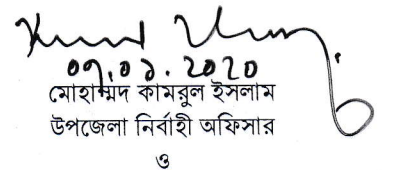 ০৭.০১.২০২০
মোহাম্মদ কামরুল ইসলাম
উপজেলা নির্বাহী অফিসার
ও